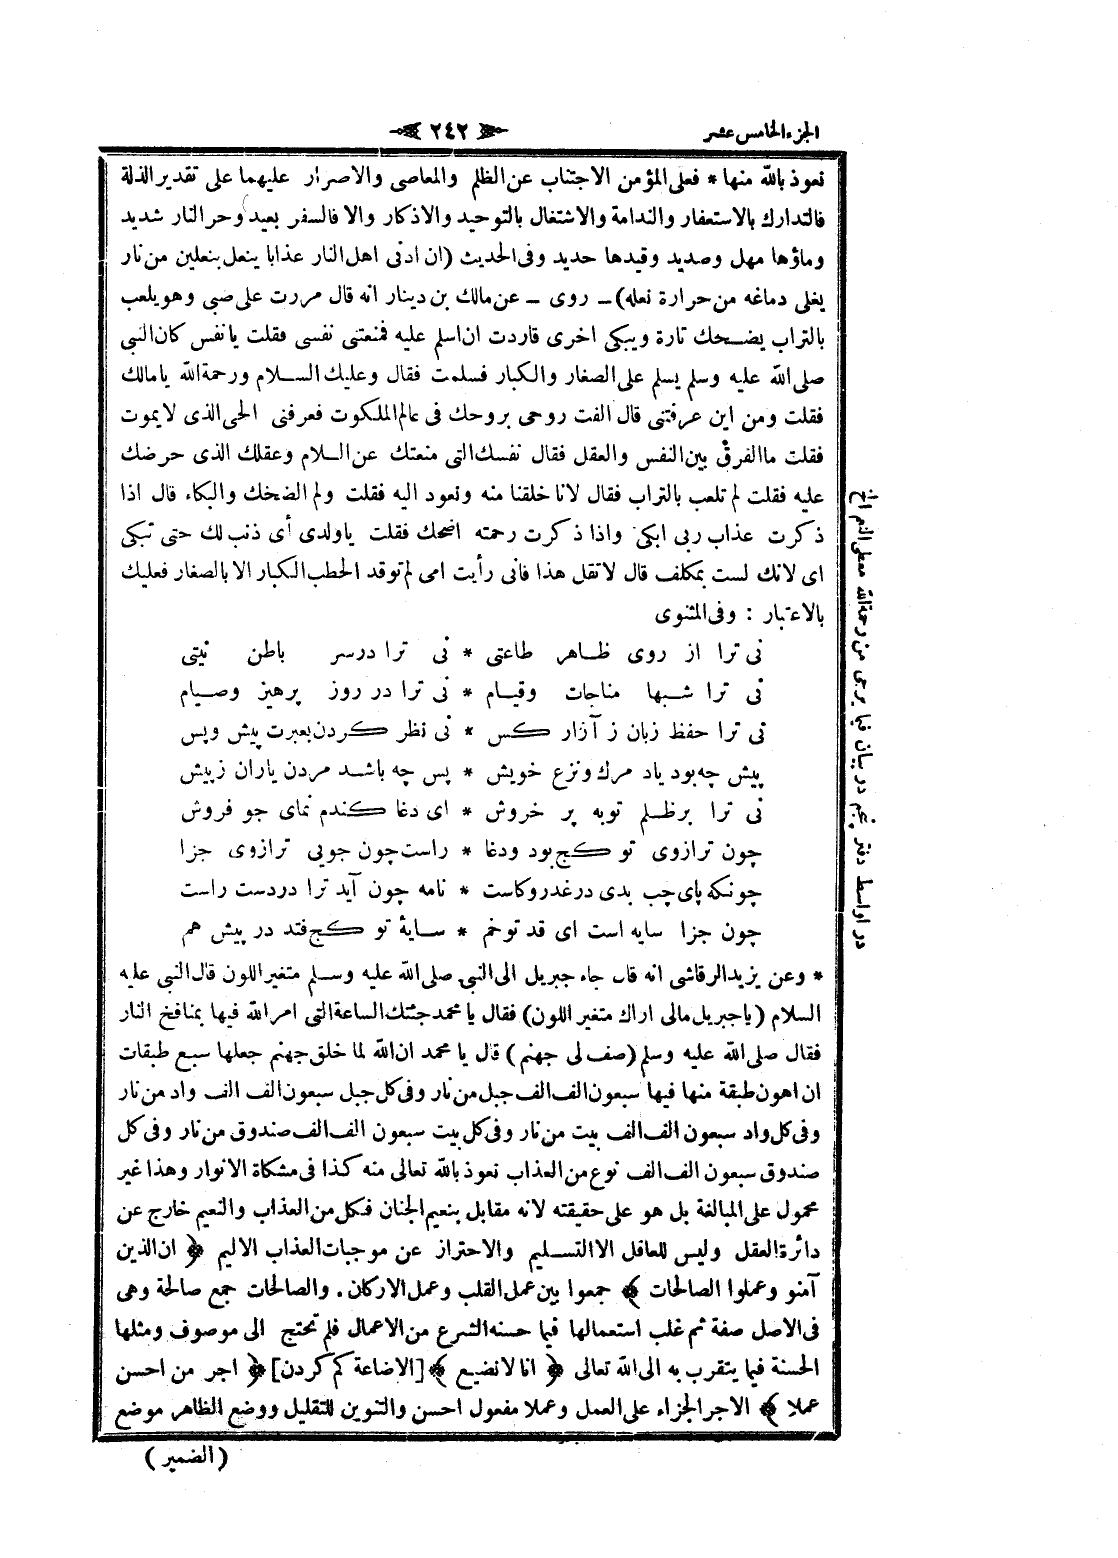 الجزء الخامس عشر
٢٤٢
نعوذ بالله منها * فعلى المؤمن الاجتناب عن الظلم والمعاصى والاصرار عليهما على تقدير الذلة
فالتدارك بالاستغفار والندامة والاشتغال بالتوحيد والاذكار والا فالسفر بعيد وحر النار شديد
وماؤها مهل وصديد وقيدها حديد وفى الحديث (ان ادنى اهل النار عذابا ينعل بنعلين من نار
يغلى دماغه من حرارة نعله) ـ روى ـ عن مالك بن دينار انه قال مررت على صبى وهو يلعب
بالتراب يضحك تارة ويبكى اخرى فاردت ان اسلم عليه فمنعتنى نفسى فقلت يا نفس كان النبى
صلى الله عليه وسلم يسلم على الصغار والكبار فسلمت فقال وعليك السلام ورحمة الله يا مالك
فقلت ومن اين عرفتنى قال الفت روحى بروحك فى عالم الملكوت فعرفنى الحى الذى لا يموت
فقلت ما الفرق بين النفس والعقل فقال نفسك التى منعتك عن السلام وعقلك الذى حرضك
عليه فقلت لم تلعب بالتراب فقال لانا خلقنا منه ونعود اليه فقلت ولم الضحك والبكاء قال اذا
ذكرت عذاب ربى ابكى واذا ذكرت رحمته اضحك فقلت يا ولدى أى ذنب لك حتى تبكى
اى لانك لست بمكلف قال لا تقل هذا فانى رأيت امى لم توقد الحطب الكبار الا بالصغار فعليك
بالاعتبار : وفى المثنوى
نى ترا از روى ظاهر طاعتى * نى ترا درسر باطن نيتى
نى ترا شبها مناجات وقيام * نى ترا در روز پرهيز وصيام
نى ترا حفظ زبان ز آزار كس * نى نظر كردن بعبرت پيش وپس
پيش چه بود ياد مرك ونزع خويش * پس چه باشد مردن ياران ز پيش
نى ترا برظلم توبه پر خروش * اى دغا كندم نماى جو فروش
چون ترازوى تو كج بود ودغا * راست چون جويى ترازوى جزا
چونكه پاى چپ بدى در غدر وكاست * نامه چون آيد ترا دردست راست
چون جزا سايه است اى قد تو خم * سايۀ تو كج فتد در پيش هم
* وعن يزيد الرقاشى انه قال جاء جبريل الى النبى صلى الله عليه وسلم متغير اللون قال النبى عليه
السلام (يا جبريل مالى اراك متغير اللون) فقال يا محمد جئتك الساعة التى امر الله فيها بمنافخ النار
فقال صلى الله عليه وسلم (صف لى جهنم) قال يا محمد ان الله لما خلق جهنم جعلها سبع طبقات
ان اهون طبقة منها فيها سبعون الف الف جبل من نار وفى كل جبل سبعون الف الف واد من نار
وفى كل واد سبعون الف الف بيت من نار وفى كل بيت سبعون الف الف صندوق من نار وفى كل
صندوق سبعون الف الف نوع من العذاب نعوذ بالله تعالى منه كذا فى مشكاة الانوار وهذا غير
محمول على المبالغة بل هو على حقيقته لانه مقابل بنعيم الجنان فكل من العذاب والنعيم خارج عن
دائرة العقل وليس للعاقل الا التسليم والاحتراز عن موجبات العذاب الاليم ﴿ ان الذين
آمنو وعملوا الصالحات ﴾ جمعوا بين عمل القلب وعمل الاركان . والصالحات جمع صالحة وهى
فى الاصل صفة ثم غلب استعمالها فيما حسنه الشرع من الاعمال فلم تحتج الى موصوف ومثلها
الحسنة فيما يتقرب به الى الله تعالى ﴿ انا لا نضيع ﴾ [الاضاعة كم كردن] ﴿ اجر من احسن
عملا ﴾ الاجر الجزاء على العمل وعملا مفعول احسن والتنوين للتقليل ووضع الظاهر موضع
(الضمير)
در اواسط دفتر پنجم در بيان فيما يرجى من رحمة الله معطى النعم الخ